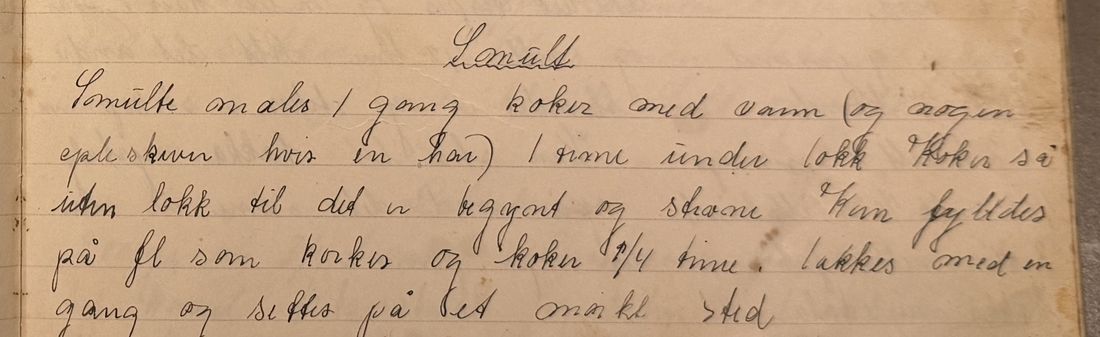 Smult
Smulte males 1 gang koker med vann (og nogen
epleskiver hvis en har) 1 time under lokk Koker så
uten lokk til det er begynt og stivne Kan fylldes
på fl som korkes og koker 1/4 time. lakkes med en
gang og settes på et mørkt sted